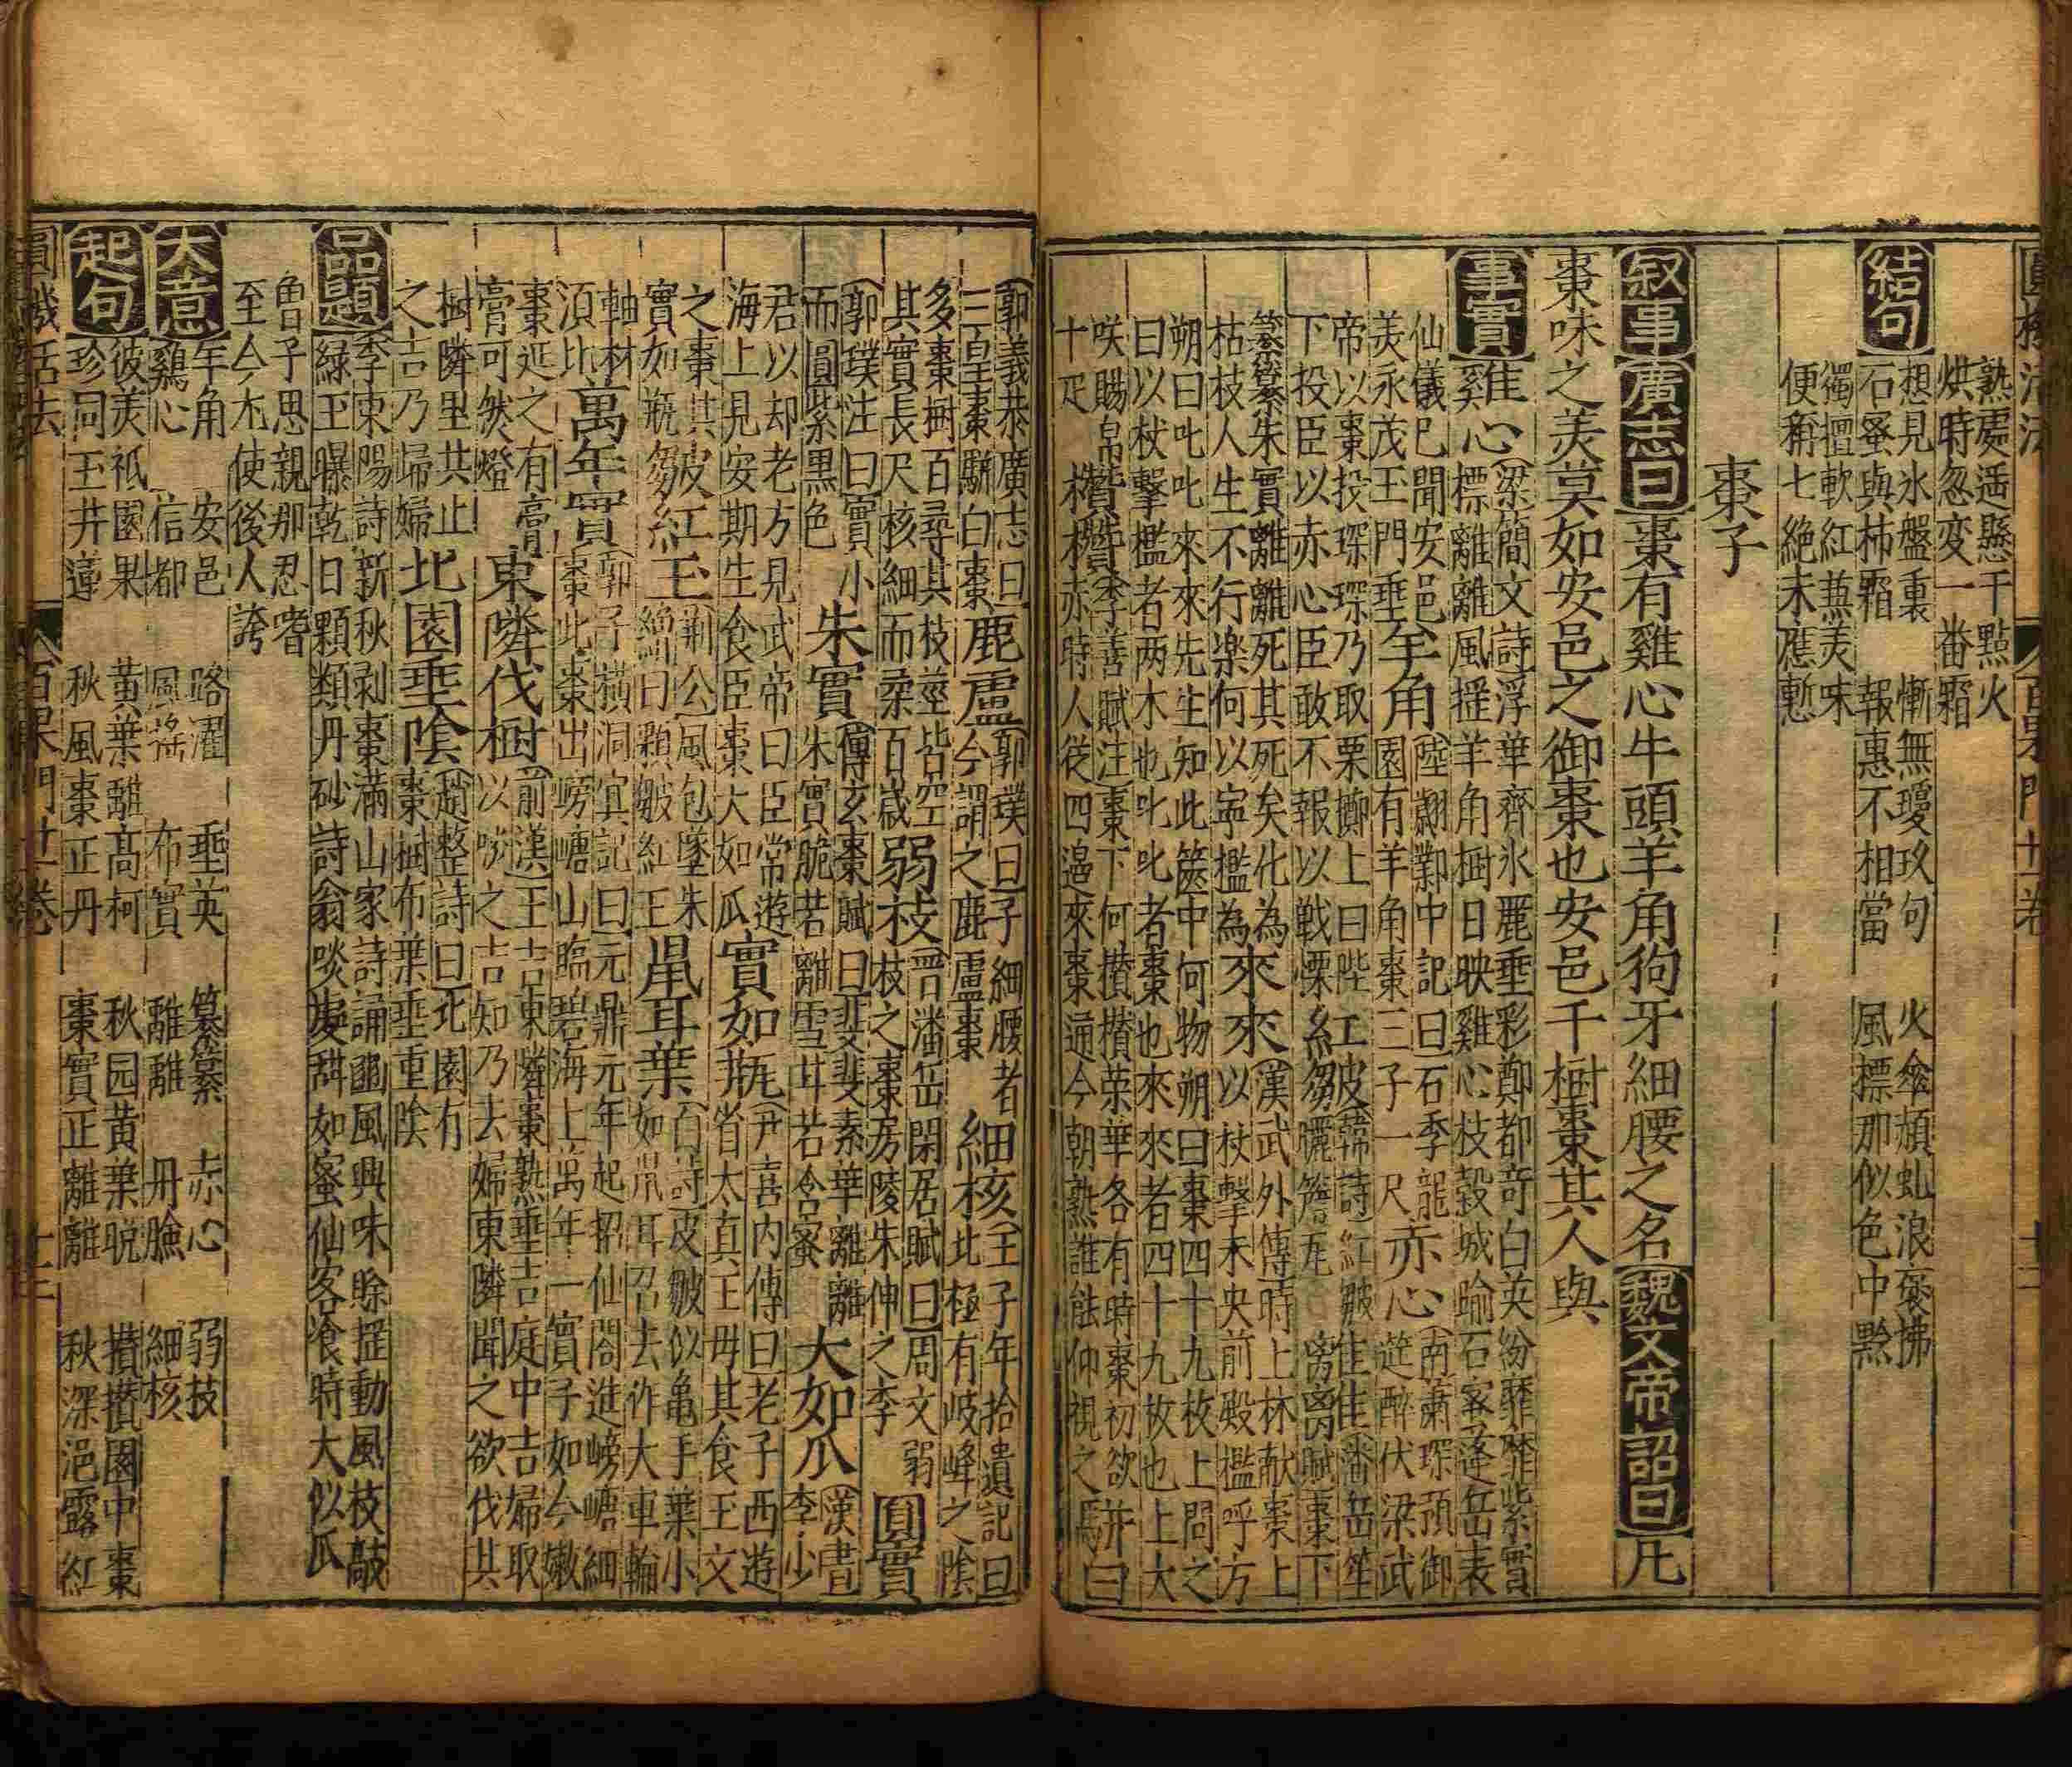 圓機活法 百果門 廿一卷 十二
熟處遥懸千點火
烘時忽变一番霜
結句
想見氷盤裏 慚無瓊玖句 火傘頳虬浪褒拂
石蜜與柿霜 報惠不相當 風標那似色中黔
獨擅軟紅蒸羙味
便稱七絶未應慙
棗子
叙事 廣志曰 棗有雞心牛頭羊角狗牙細腰之名 魏文帝詔曰 凡
棗味之羙莫如安邑之御棗也安邑千樹棗其人與
事實 雞心 梁簡文詩浮華齊氷麗垂彩鄭都竒白英紛靡靡紫實
標離離風揺羊角樹日映雞心枝穀城踰石蜜蓬岳表
仙儀已聞安邑羙永茂玉門垂 羊角 陸翽鄴中記曰石季龍園有羊角棗三子一尺 赤心 南萧琛預御筵醉伏梁武
帝以棗投琛琛乃取栗擲上曰陛下投臣以赤心臣敢不報以戰慄 紅皺 韓詩紅皺曬簷瓦 離離 潘岳笙賦棗下
纂纂朱實離離死其死矣化為枯枝人生不行樂何以寜檻為 來來 漢武外傳時上林献棗上以杖擊未央前殿檻呼方
朔曰叱叱來來先生知此篋中何物朔曰棗四十九枚上問之
曰以杖擊檻者两木也叱叱者棗也來來者四十九枚也上大
咲賜帛十疋 櫕櫕 李善賦注棗下何攅攅荣華各有時棗初欲赤時人從四邉來棗適今朝熟誰能仰視之
郭義恭廣志曰三皇棗駢白棗 鹿盧 郭璞曰子細腰者今謂之鹿盧棗 細核 王子年拾遺記曰北極有岐峰之陰
多棗樹百尋其枝莖皆空其實長尺核細而柔百歳 弱枝 晋潘岳閑居賦曰周文弱枝之棗房陵朱伸之李 圓實
郭璞注曰實小而圓紫黒色 朱實 傅玄棗賦曰斐斐素華離離朱實脆若離雪甘若含蜜 大如瓜 漢書李少
君以却老方見武帝曰臣常遊海上見安期生食臣棗大如瓜 實如瓶 尹喜内傳曰老子西遊省太真王母其食玉文
之棗其實如瓶 皺紅玉 荆公風包墜朱繒日顆皺紅玉 鼠耳葉 白詩皮皺似亀手葉小如鼠耳召去作大車輪
軸材湏比 萬年實 郭子橫洞冥記曰元鼎元年起招仙閣進崤嵣細棗此棗出崤嵣山臨碧海上萬年一實子如今嫩
棗延之有膏膏可然燈 東隣伐樹 前漢王吉東隣棗熟垂吉庭中吉婦取以啖之吉知乃去婦東隣聞之欲伐其
樹隣里共止之吉乃歸婦 北園垂陰 趙整詩曰北園有棗樹布葉垂重陰
品題 李東陽詩新秋剥棗滿山家詩誦豳風興味賒揺動風枝敲
緑玉曝乾日顆類丹砂詩翁啖處甜如蜜仙客飡時大似瓜
魯子思親那忍嘗
至今木使後人誇
大意
羊角 安邑 咯濯 垂英 纂纂 赤心 弱技
鷄心 信都 風揺 布實 離離 丹臉 細核
起句
彼羙祇園果 黄葉離高柯 秋园黄葉脱 攅攅園中棗
珍同玉井蓮 秋風棗正丹 棗實正離離 秋深浥露紅
圓機活法 百果門 廿一卷 十二